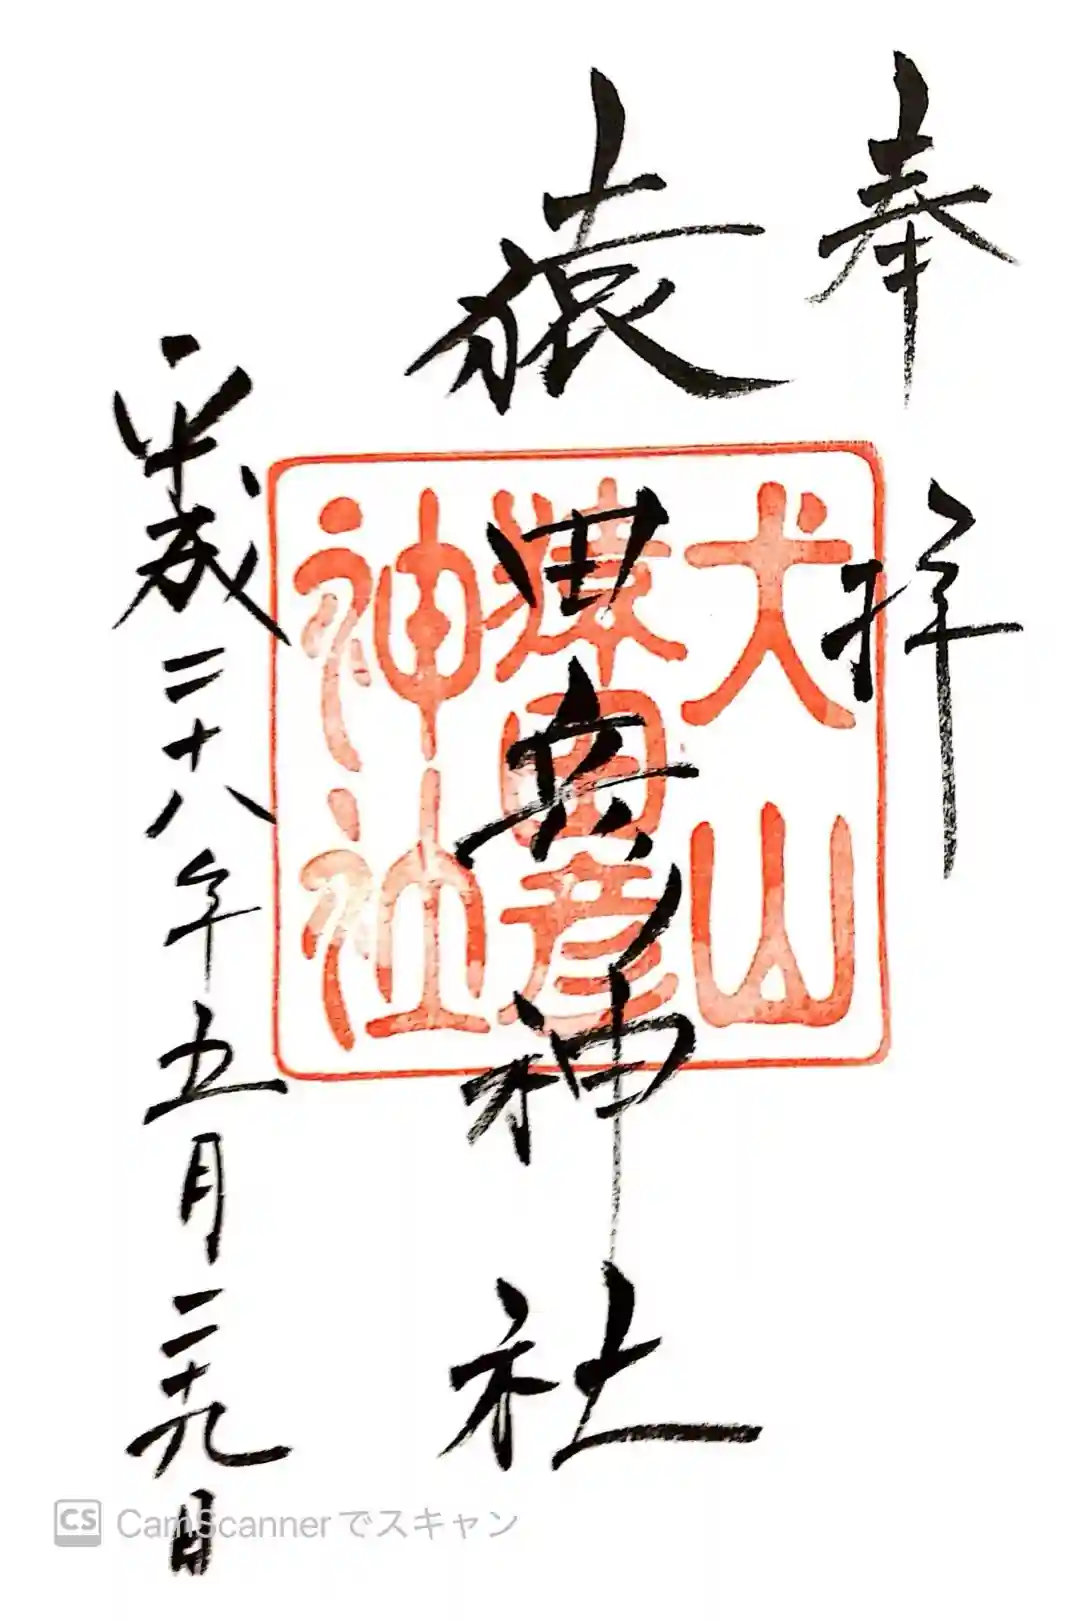 奉拝
猿田彦神社
平成二十八年五月二十九日
犬山
猿田彦
神社
CS CamScannerでスキャン